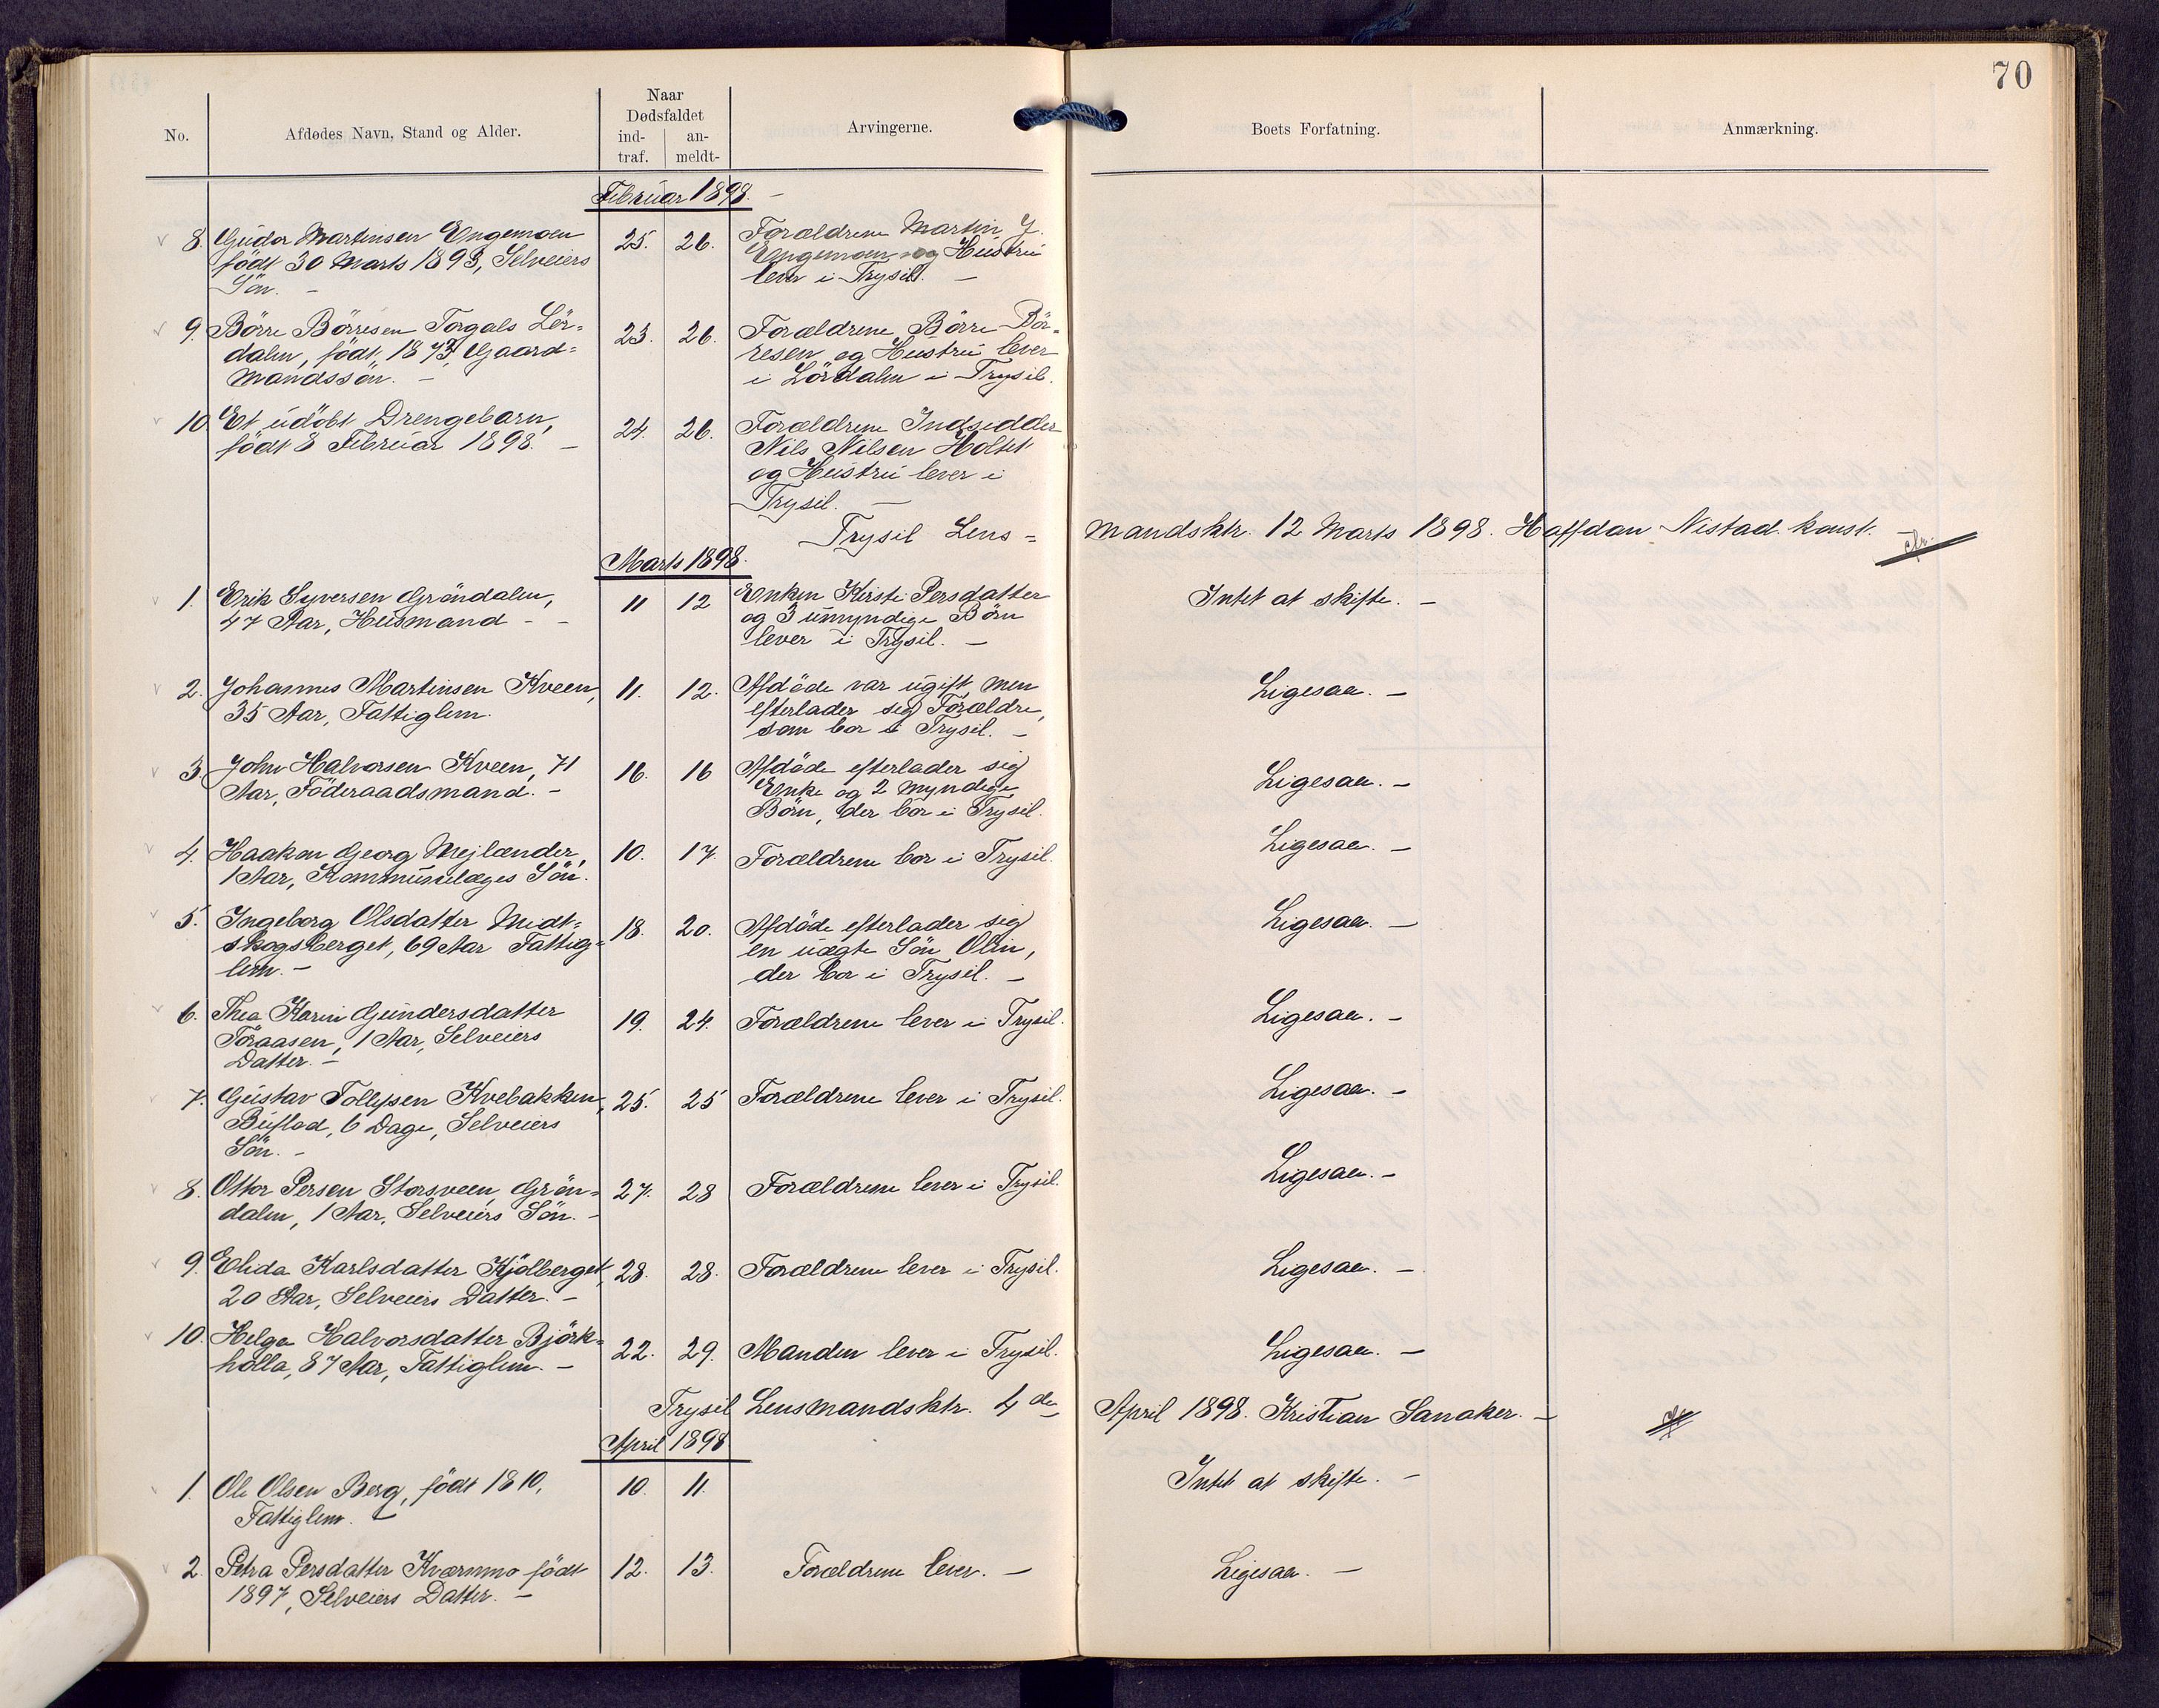 70
No.
Afdødes Navn, Stand og Alder.
Naar
Dødsfaldet
ind-
traf.
an-
meldt-
Arvingerne.
Boets Forfatning.
Anmærkning.
Februar 1898. -
8. Gudor Martinsen Engemoen 25. 26. Forældrene Martin J.
født 30 Marts 1893, Selveiers Engemoen og Hustru
Søn. - lever i Trysil. -
9. Börre Börresen Torgals Lör- 23. 26. Forældrene Börre Bör-
dalen, født 1873, Gaard- resen og Hustru lever
mandssön. - i Lördalen i Trysil.
10 Et udöbt Drengebarn, 24. 26. Forældrene Indsidder
født 8 Februar 1898. - Nils Nilsen Holtet
og Hustru lever i
Trysil. -
Trysil Lens- mandsktr. 12 Marts 1898. Halfdan Nistad konst.
Marts 1898.
1. Erik Syversen Gröndalen, 11 12 Enken Kirsti Persdatter Intet at skifte. -
47 Aar, Husmand - - og 3 umyndige Börn
lever i Trysil. -
2. Johannes Martinsen Kveen, 11. 12. Afdöde var ugift, men Ligesaa. -
35 Aar, Fattiglem. efterlader sig Forældre,
som bor i Trysil. -
3. John Halvorsen Kveen, 71 16. 16 Afdöde efterlader sig Ligesaa. -
Aar, Föderaadsmand. - Enke og 2 myndige
Börn, der bor i Trysil.
4. Haakon Georg Mejlænder, 10. 17. Forældrene bor i Trysil. Ligesaa. -
1 Aar, Kommunelæges Sön.
5. Ingeborg Olsdatter Midt- 18. 20. Afdöde efterlader sig Ligesaa. -
skogsberget, 69 Aar Fattig- en uægte Sön Olin,
lem. - der bor i Trysil. -
6. Thea Karin Gundersdatter 19. 24. Forældrene lever i Trysil. Ligesaa. -
Töraasen, 1 Aar, Selveiers
Datter. -
7. Gustav Tollefsen Kvebakken, 25. 25 Forældrene lever i Trysil. Ligesaa. -
Buflod, 6 Dage, Selveiers
Sön. -
8. Ottor Persen Storsveen, Grön- 27. 28 Forældrene lever i Trysil. Ligesaa. -
dalen, 1 Aar, Selveiers Sön. -
9. Elida Karlsdatter Kjölberget, 28. 28. Forældrene lever i Trysil. Ligesaa. -
20 Aar, Selveiers Datter. -
10. Helga Halvorsdatter Björk- 22. 29. Manden lever i Trysil. Ligesaa. -
holla, 87 Aar, Fattiglem. -
Trysil Lensmandsktr. 4de April 1898. Kristian Sanaker. -
April 1898
1. Ole Olsen Berg, födt 1810, 10. 11. Intet at skifte. -
Fattiglem. -
2. Petra Persdatter Kværnmo födt 12. 13. Forældrene lever. - Ligesaa. -
1897, Selveiers Datter. -